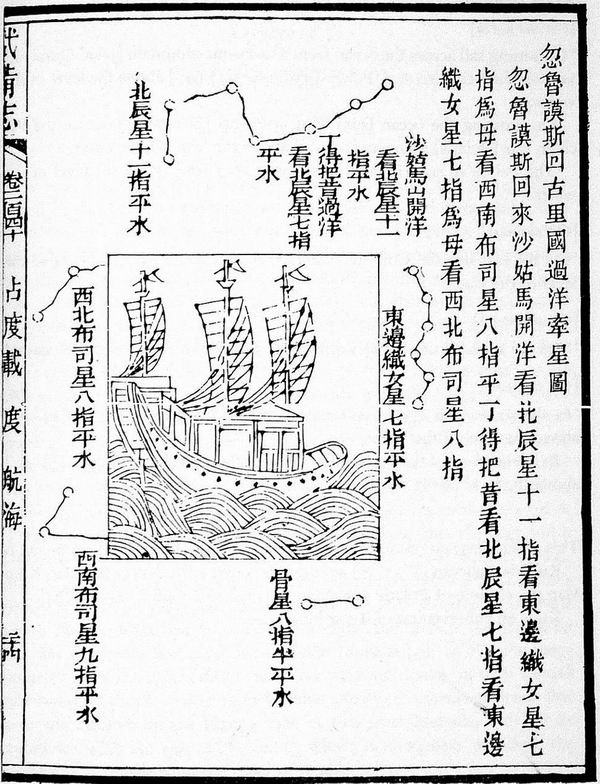 忽魯謨斯回古里國過洋牽星圖
忽魯謨斯回來沙姑馬開洋看北辰星十一指看東邊織女星七
指爲母看西南布司星八指平丁得把昔看北辰星七指看東邊
織女星七指爲母看西北布司星八指
沙姑馬山開洋
看北辰星十一
指平水
丁得把昔過洋
看北辰星七指
平水
北辰星十一指平水
東邊織女星七指平水
西北布司星八指平水
骨星八指半平水
西南布司星九指平水
武備志 卷二百四十 占度載 度 航海